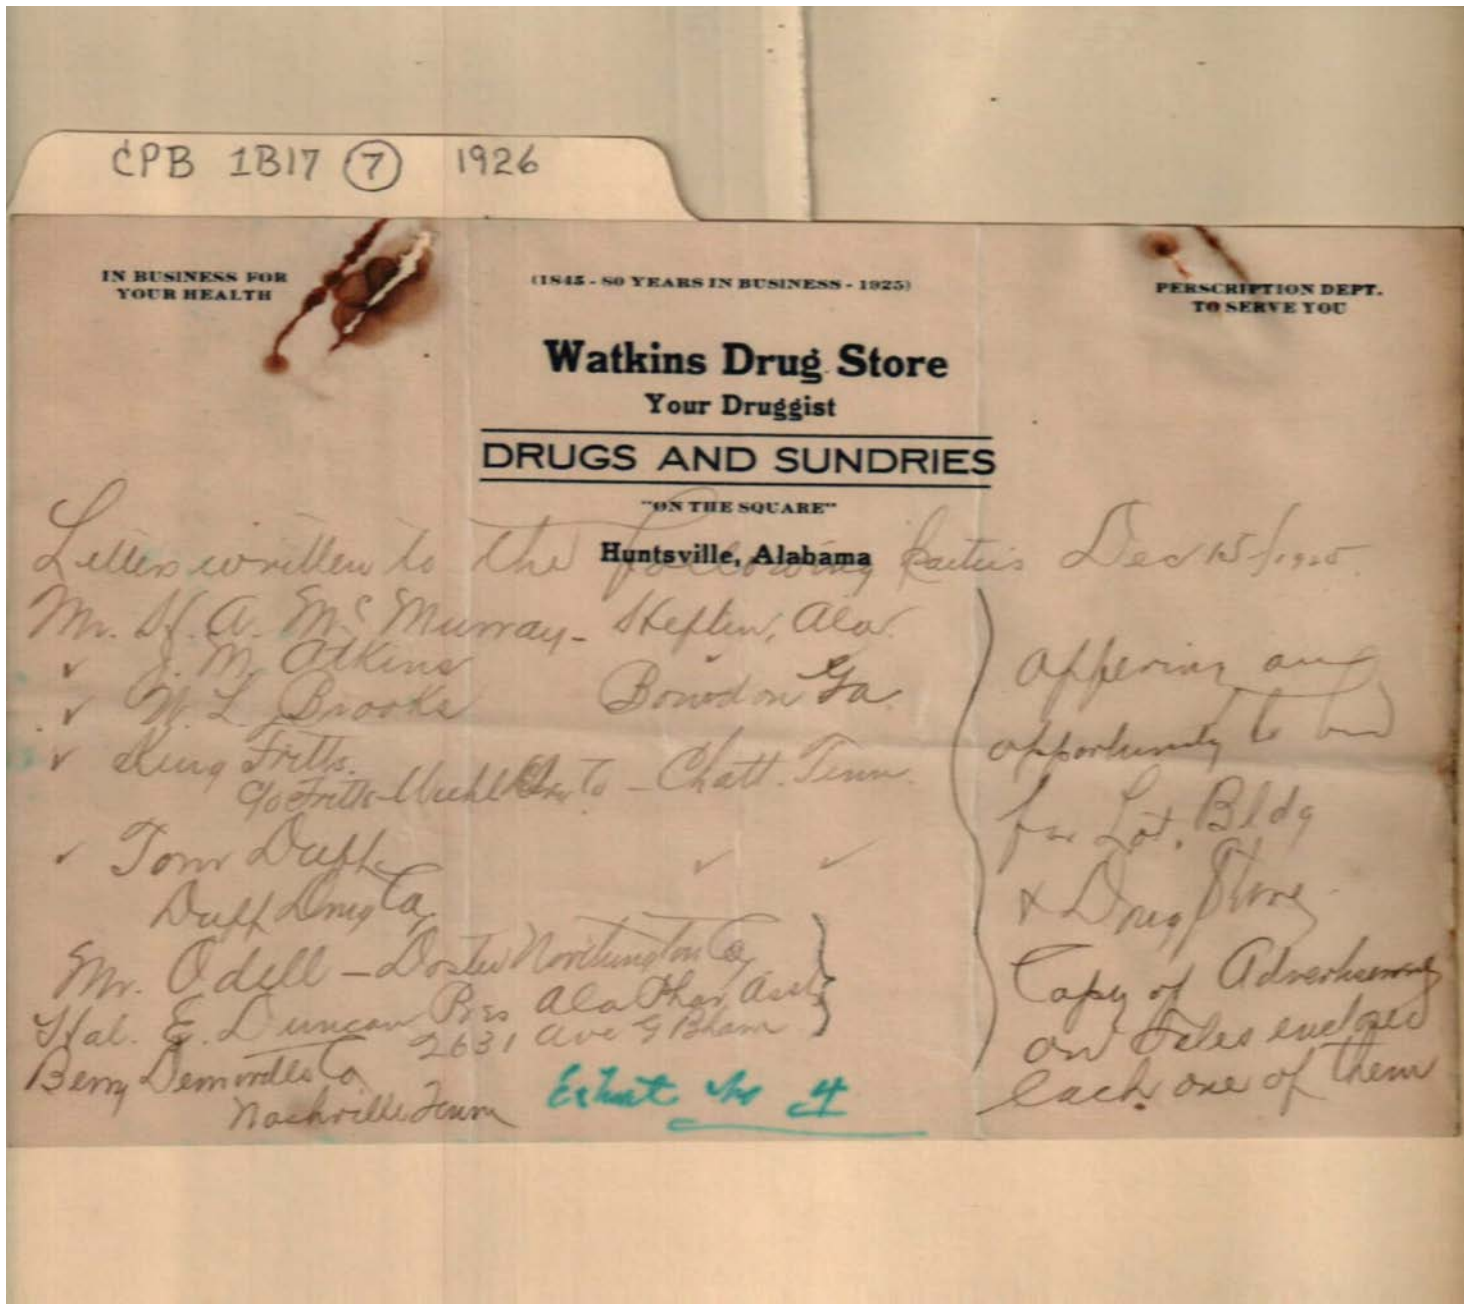 CPB 1B17 7 1926
IN BUSINESS FOR
YOUR HEALTH
(1845 - 80 YEARS IN BUSINESS - 1925)
PERSCRIPTION DEPT.
TO SERVE YOU
Watkins Drug Store
Your Druggist
DRUGS AND SUNDRIES
"ON THE SQUARE"
Huntsville, Alabama
Letters written to the Following Parties Dec 15/1925.
Mr. H. A. McMurray - Heflin, Ala.
" J. M. Atkins "
" W. L. Brooks Bowdon Ga.
" King Fritts.
c/o Fritts- Co - Chatt. Tenn.
" Tom Duff " "
Duff Drug Co,
Mr. Odell - Doster Northington Co,
Hal. E. Duncan Pres Ala Phar, Assn
2631 Ave G Bham
Berry Demoville Co
Nashville Tenn
Offering an
opportunity to bid
for Lot, Bldg
& Drug Store
Copy of Advertisement
on Sales enclosed
each one of them
No 4